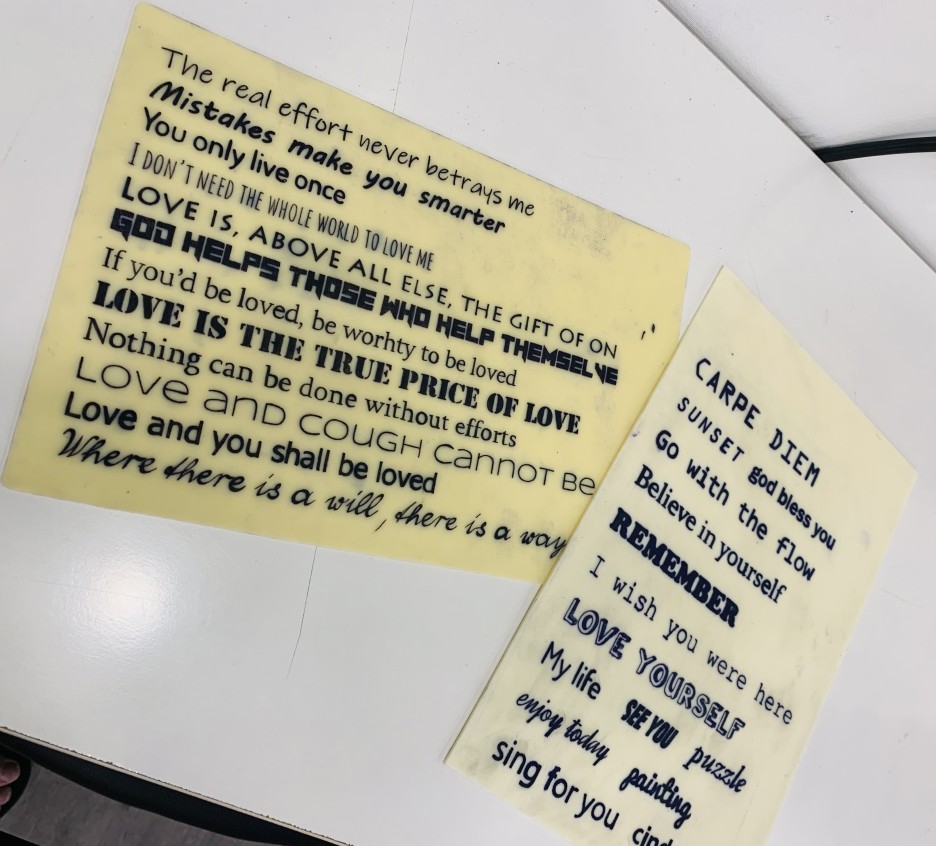 The real effort never betrays me
Mistakes make you smarter
You only live once
I DON'T NEED THE WHOLE WORLD TO LOVE ME
LOVE IS, ABOVE ALL ELSE, THE GIFT OF ON
GOD HELPS THOSE WHO HELP THEMSELVE
If you'd be loved, be worhty to be loved
LOVE IS THE TRUE PRICE OF LOVE
Nothing can be done without efforts
Love and cough cannot be
Love and you shall be loved
Where there is a will, there is a way
CARPE DIEM
SUNSET god bless you
Go with the flow
Believe in yourself
REMEMBER
I wish you were here
LOVE YOURSELF
My life SEE YOU puzzle
enjoy today painting
sing for you